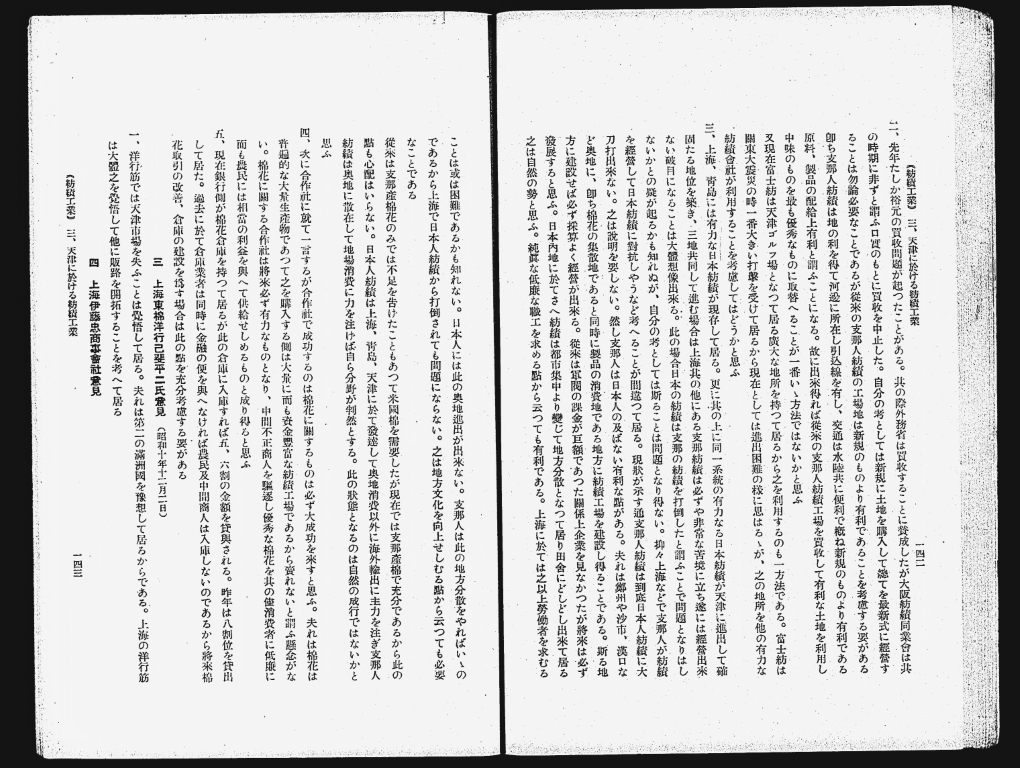 （紡績工業）　三、天津に於ける紡績工業
一四二
二、先年たしか裕元の買收問題が起つたことがある。其の際外務省は買收することに賛成したが大阪紡績同業會は共
の時期に非ずと謂ふ口實のもとに買收を中止した。自分の考としては新規に土地を購入して總てを最新式に經營す
ることは勿論必要なことであるが從來の支那人紡績の工場地は新規のものより有利であることを考慮する要がある
卽ち支那人紡績は地の利を得て河邊に所在し引込線を有し、交通は水陸共に便利で概ね新規のものより有利である
原料、製品の配給上有利と謂ふことになる。故に出來得れば從來の支那人紡績工場を買收して有利な土地を利用し
中味のものを最も優秀なものに取替へることが一番いゝ方法ではないかと思ふ
又現在富士紡は天津ゴルフ場となつて居る廣大な地所を持つて居るから之を利用するのも一方法である。富士紡は
關東大震災の時一番大きい打擊を受けて居るから現在としては進出困難の樣に思はるゝが、之の地所を他の有力な
紡績會社が利用することを考慮してはどうかと思ふ
三、上海、靑島には有力な日本紡績が現存して居る。更に其の上に同一系統の有力なる日本紡績が天津に進出して確
固たる地位を築き、三地共同して進む場合は上海其の他にある支那紡績は必ずや非常な苦境に立ち遂には經營出來
ない破目になることは大體想像出來る。此の場合日本の紡績は支那の紡績を打倒したと謂ふことで問題となりはし
ないかとの疑が起るかも知れぬが、自分の考としては斯ることは問題となり得ない。抑々上海などで支那人が紡績
を經營して日本紡績に對抗しやうなど考へることが間違つて居る。現狀が示す通支那人紡績は到底日本人紡績に太
刀打出來ない。之は說明を要しない。然し支那人は日本人の及ばない有利な點がある。夫れは鄭州や沙市、漢口な
ど奧地に、卽ち棉花の集散地であると同時に製品の消費地である地方に紡績工場を建設し得ることである。斯る地
方に建設せば必ず採算よく經營が出來る。從來は軍閥の課金が巨額であつた關係上企業を見なかつたが將來は必ず
發展すると思ふ。日本內地に於てさへ紡績は都市集中より變じて地方分散となつて居り田舍にどしどし出來て居る
之は自然の勢と思ふ。純眞な低廉な職工を求める點から云つても有利である。上海に於ては之以上勞働者を求むる
ことは或は困難であるかも知れない。日本人には此の奧地進出が出來ない。支那人は此の地方分散をやればいゝの
であるから上海で日本人紡績から打倒されても問題にならない。之は地方文化を向上せしむる點から云つても必要
なことである
從來は支那產棉花のみでは不足を吿げたこともあつて米國棉を需要したが現在では支那產棉で充分であるから此の
點も心配はいらない。日本人紡績は上海、靑島、天津に於て發達して奧地消費以外に海外輸出に主力を注ぎ支那人
紡績は奧地に散在して地場消費に力を注げば自ら分野が判然とする。此の狀態となるのは自然の成行ではないかと
思ふ
四、次に合作社に就て一言するが合作社で成功するのは棉花に關するものは必ず大成功を來すと思ふ。夫れは棉花は
普遍的な大量生產物であつて之を購入する側は大量に而も資金豐富な紡績工場であるから賣れないと謂ふ懸念がな
い。棉花に關する合作社は將來必ず有力なものとなり、中間不正商人を驅逐し優秀な棉花を其の儘消費者に低廉に
而も農民には相當の利益を與へて供給せしめるものと成り得ると思ふ
五、現在銀行側が棉花倉庫を持つて居るが此の倉庫に入庫すれば五、六割の金額を貸與される。昨年は八割位を貸出
して居た。過去に於て倉庫業者は同時に金融の便を與へなければ農民及中間商人は入庫しないのであるから將來棉
花取引の改善、倉庫の建設を爲す場合は此の點を充分考慮する要がある
三　上海東棉洋行己斐平二氏意見　（昭和十年十二月二日）
一、洋行筋では天津市場を失ふことは覺悟して居る。夫れは第二の滿洲國を豫想して居るからである。上海の洋行筋
は大體之を覺悟して他に販路を開拓することを考へて居る
四　上海伊藤忠商事會社意見
（紡績工業）　三、天津に於ける紡績工業
一四三